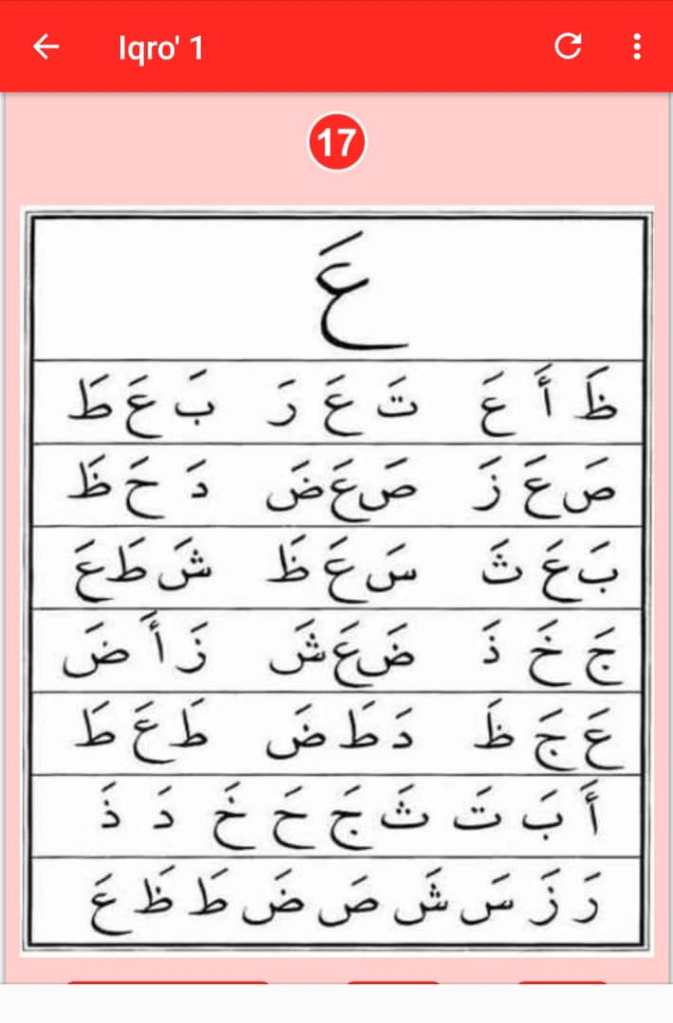 Iqro' 1
17
عَ
ظَ أَ عَ تَ عَ رَ بَ عَ طَ
صَ عَ زَ صَ عَ ضَ دَ حَ ظَ
بَ عَ ثَ سَ عَ ظَ شَ طَ عَ
جَ خَ ذَ ضَ عَ شَ زَ أَ ضَ
عَ جَ ظَ دَ طَ ضَ طَ عَ طَ
أَ بَ تَ ثَ جَ حَ خَ دَ ذَ
رَ زَ سَ شَ صَ ضَ طَ ظَ عَ